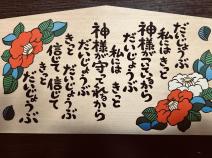 だいじょうぶ
私はきっと
神様がついてるから
私はきっと
だいじょうぶ
神様が守ってれるから
きっとだいじょうぶ
信じて信じて
きっと
だいじょうぶ